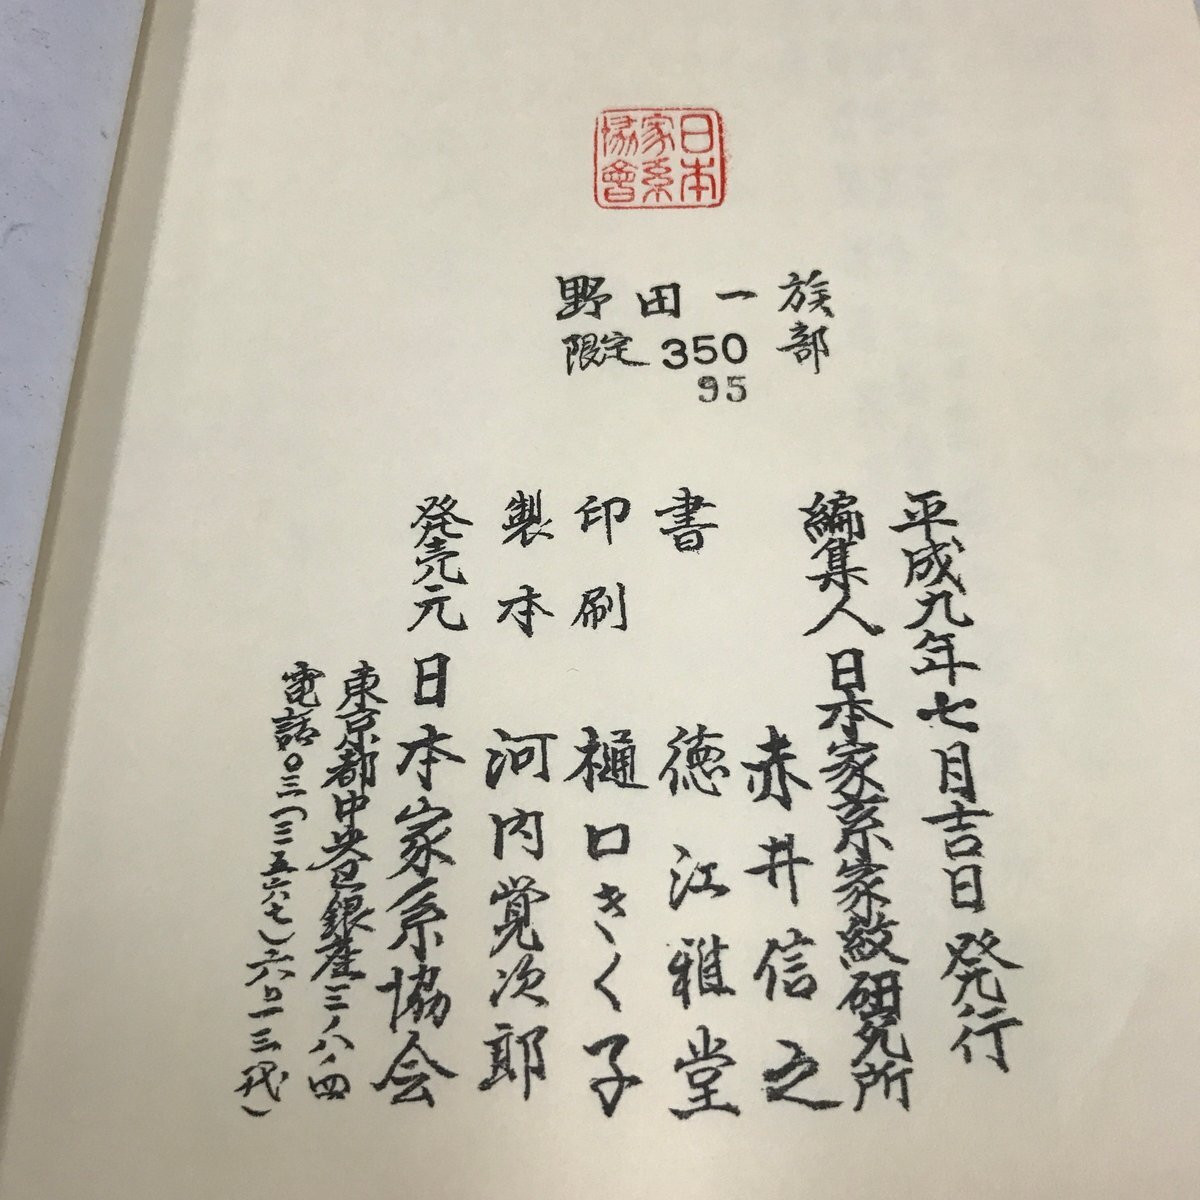 日本
家系
協會
野田一族
限定350部
95
平成九年七月吉日発行
編集人 日本家系家紋研究所
赤井信之
書 徳江雅堂
印刷 樋口きく子
製本 河内覚次郎
発売元 日本家系協会
東京都中央区銀座三ノ八ノ四
電話〇三(三五六七)六八一三(代)